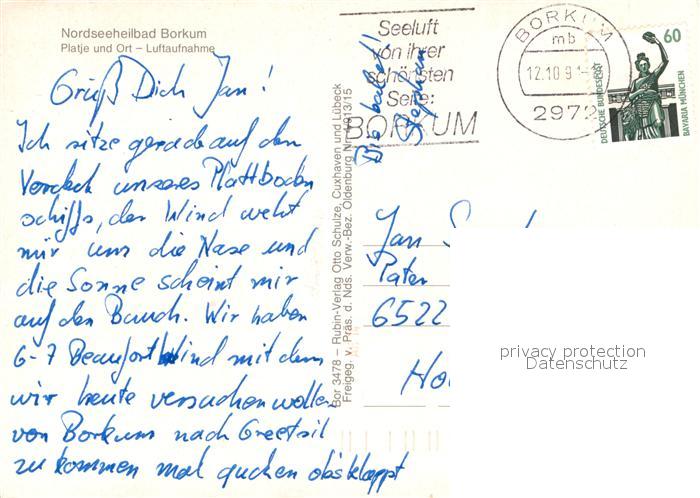 Nordseeheilbad Borkum
Platje und Ort – Luftaufnahme
Gruß Dich Jan!
Ich sitze gerade auf den
Verdeck unseres Plattboden
schiffs, der Wind weht
mir um die Nase und
die Sonne scheint mir
auf den Bauch. Wir haben
6-7 Beaufort Wind mit dem
wir heute versuchen wollen
von Borkum nach Greetsil
zu kommen mal gucken obs klappt
Bis bald!
Stephan
Bor 3478 – Rubin-Verlag Otto Schulze, Cuxhaven und Lübeck
Freigeg. v. Präs. d. Nds. Verw.-Bez. Oldenburg Nr.
13/15
Seeluft
von ihrer
schönsten
Seite:
BORKUM
BORKUM
mb
12.10.9
2972
60
DEUTSCHE BUNDESPOST
BAVARIA MÜNCHEN
Jan
Pater
6522
Ho
privacy protection
Datenschutz